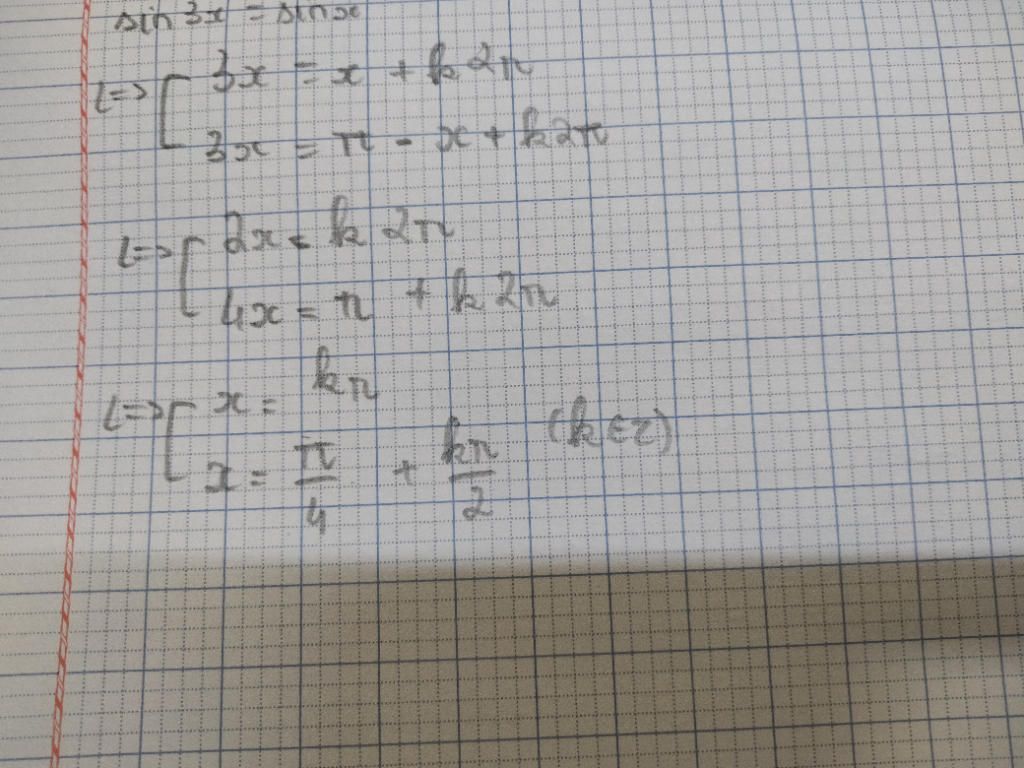 sin 3x = sin x
<=> [ 3x = x + k2π
3x = π - x + k2π
<=> [ 2x = k2π
4x = π + k2π
<=> [ x = kπ
x = π/4 + kπ/2 (k ∈ Z)